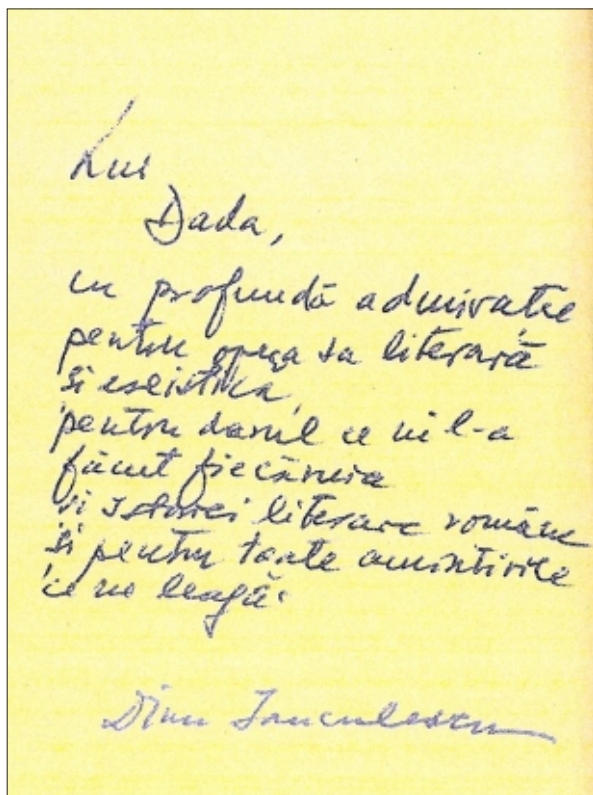 Lui
Dada,
cu profundă admirație
pentru opera sa literară
și eseistică,
pentru darul ce ni l-a
făcut fiecăruia
și istoriei literare române
și pentru toate amintirile
ce ne leagă.
Dinu Ianculescu